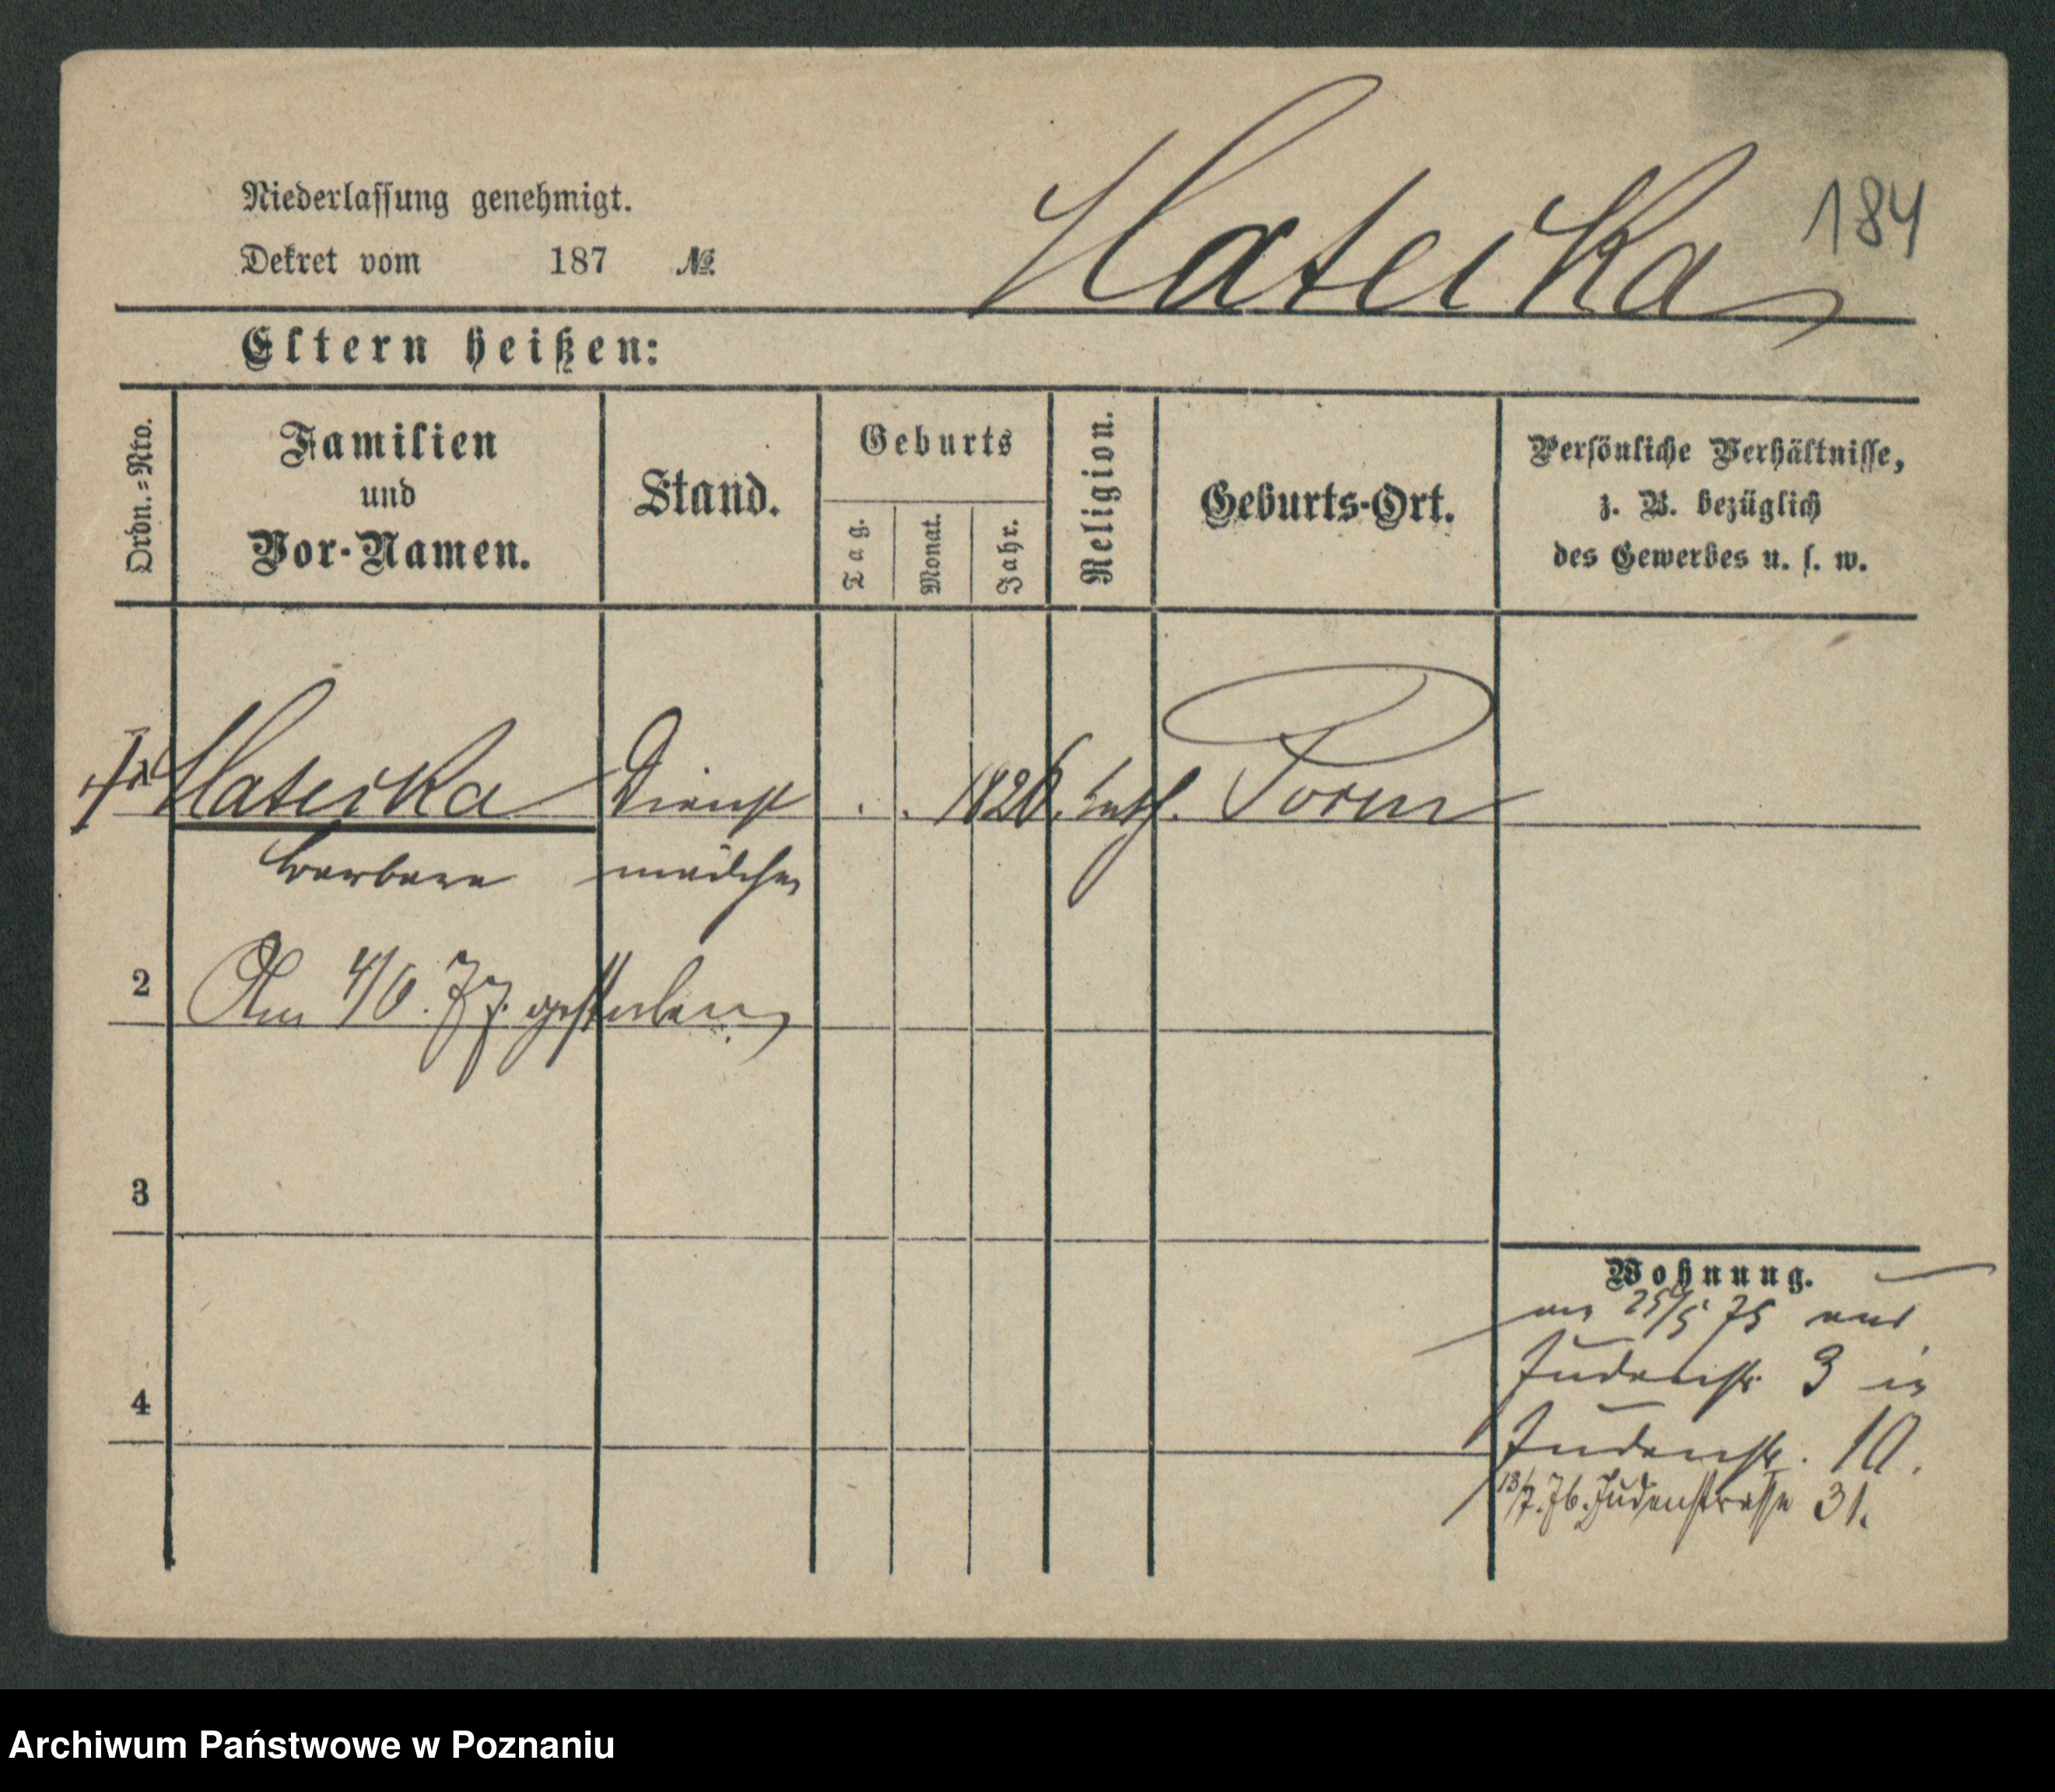 Niederlassung genehmigt.
Dekret vom 187 №
Hateika
184
Eltern heißen:
Ordn.=Nro.
Familien
und
Vor-Namen.
Stand.
Geburts
Tag.
Monat.
Jahr.
Religion.
Geburts-Ort.
Persönliche Verhältnisse,
z. B. bezüglich
des Gewerbes u. s. w.
Hateika Dienst . . 1826. kath. Posen
Barbara mädchen
2 Am 4/6. 77. gestorben
3
4
Wohnung.
am 25/5 75 aus
Judenstr. 3 in
Judenstr. 10.
13/7. 76. Judenstrasse 31.
Archiwum Państwowe w Poznaniu